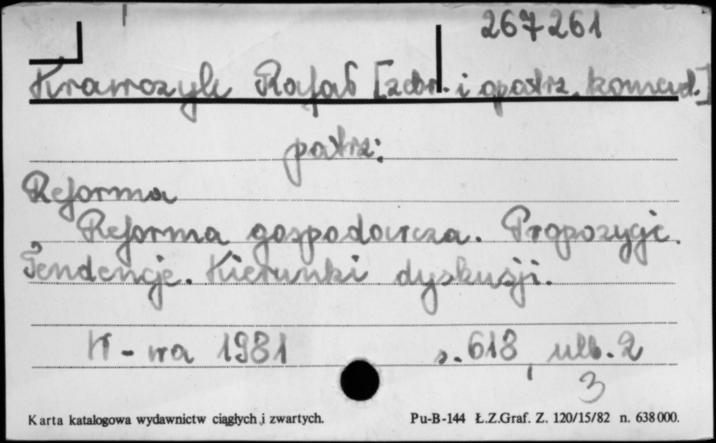 267261
Krawczyk Rafał [zebr. i opatrz. koment.]
patrz:
Reforma
Reforma gospodarcza. Propozycje.
Tendencje. Kierunki dyskusji.
W-wa 1981 s. 618, ulb. 2
3
Karta katalogowa wydawnictw ciągłych i zwartych. Pu-B-144 Ł.Z.Graf. Z. 120/15/82 n. 638000.